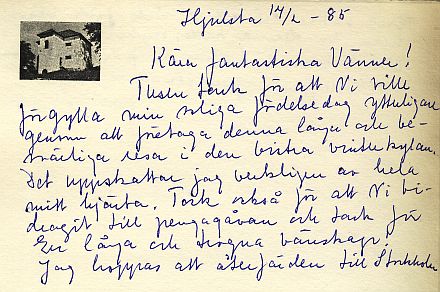 Hjulsta 14/2 - 85
Kära fantastiska Vänner!
Tusen tack för att Ni ville
förgylla min soliga födelsedag ytterligare
genom att företaga denna långa och be-
svärliga resa i den bistra vinterkylan.
Det uppskattar jag verkligen av hela
mitt hjärta. Tack också för att Ni bi-
dragit till pengagåvan och tack för
Er långa och trogna vänskap!
Jag hoppas att återfärden till Stockholm